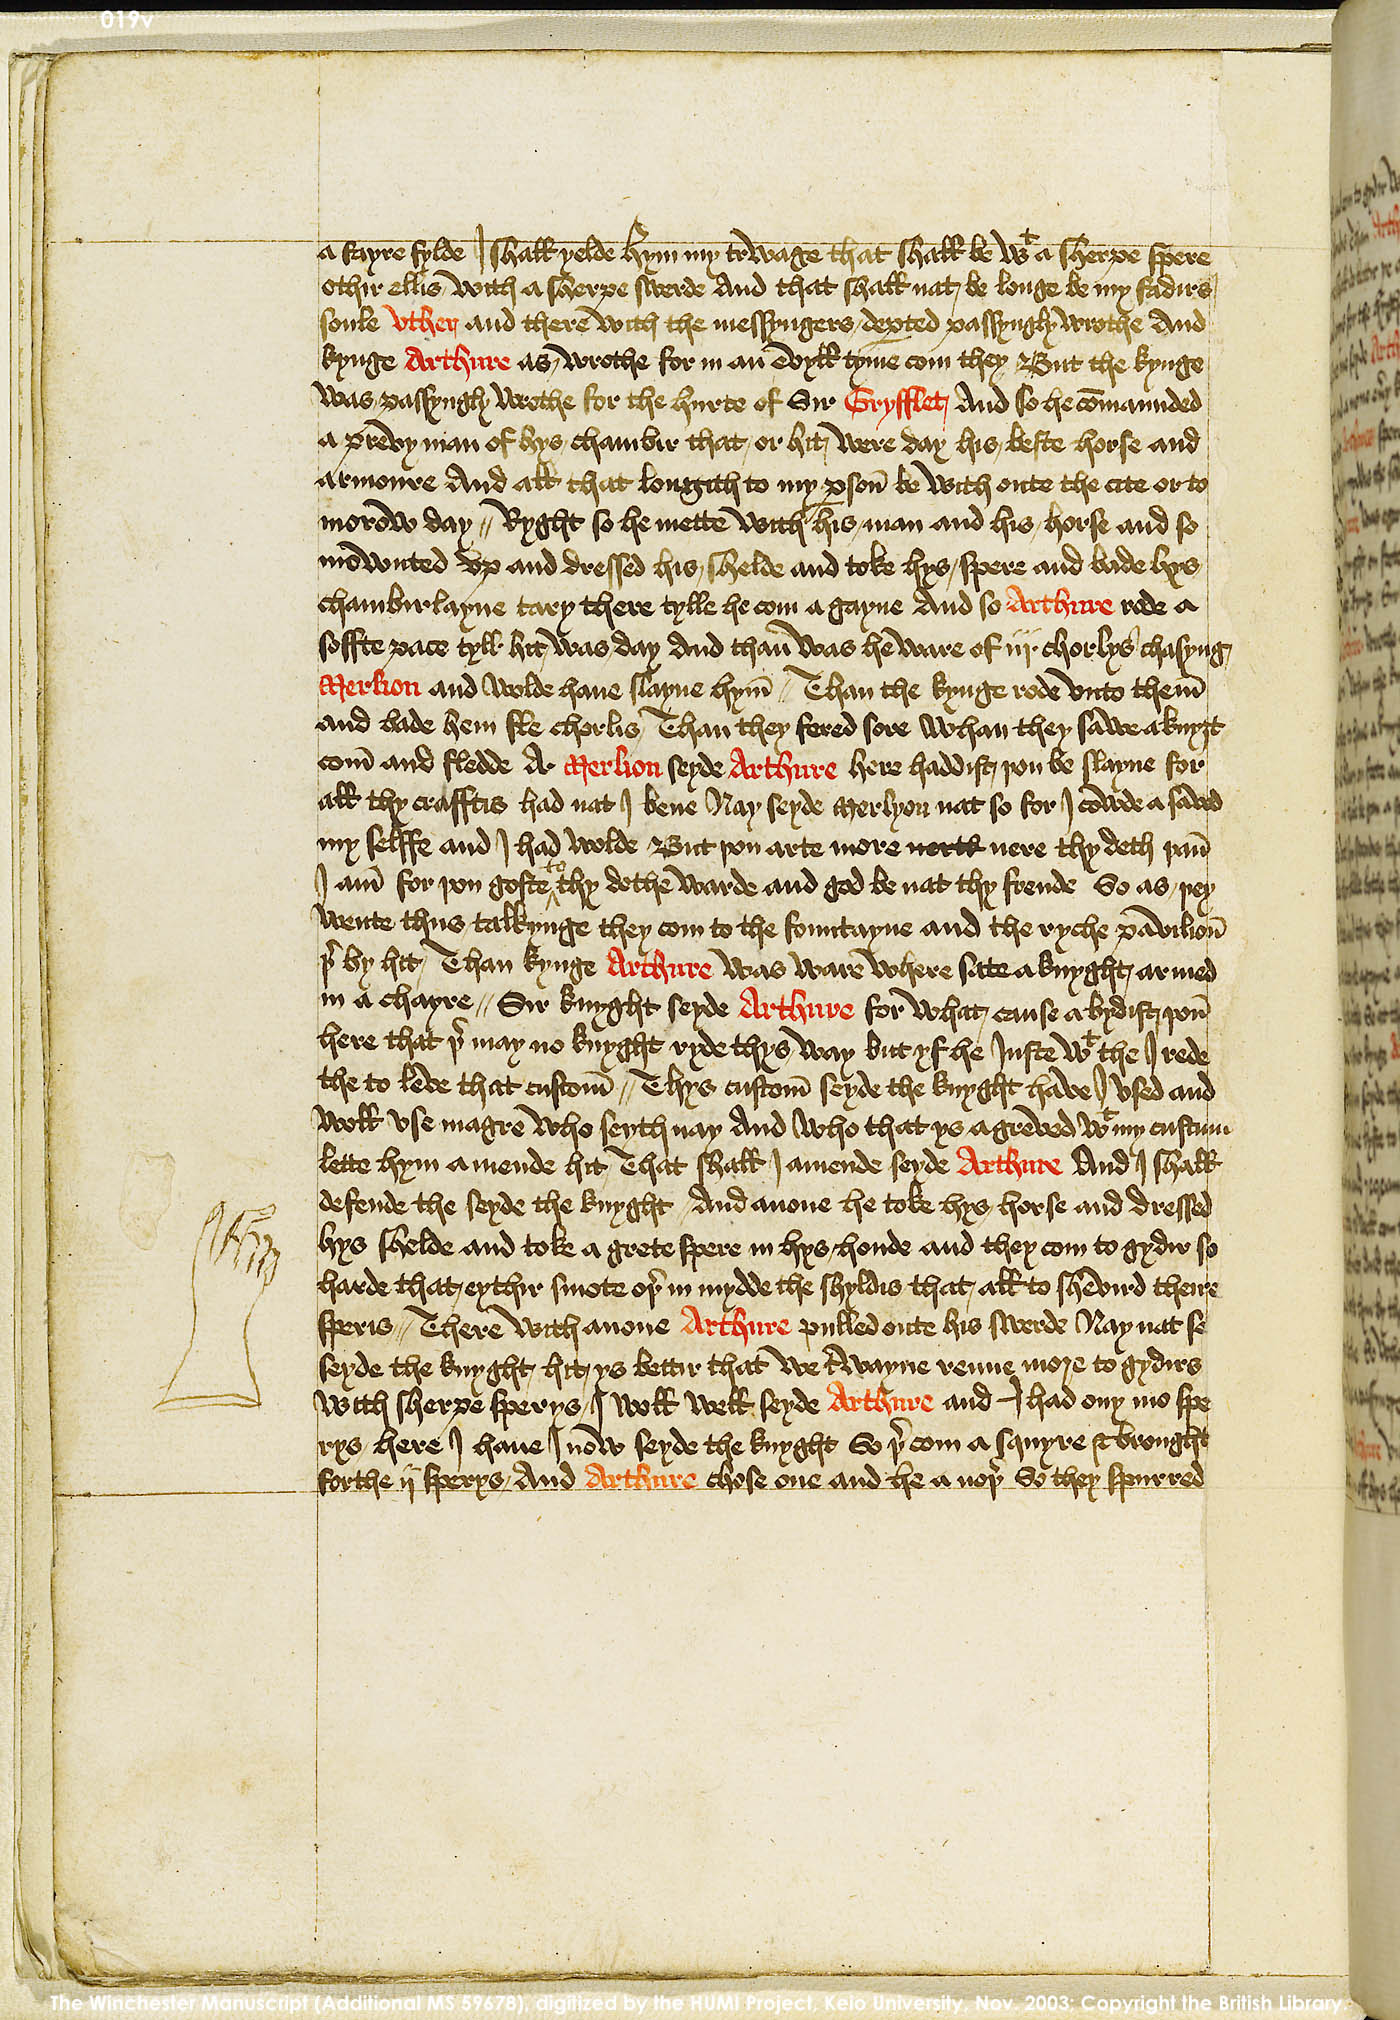 019v
a fayre fylde I shall yelde hym my trwage that shall be wt a sherpe spere
othir ellis with a sherpe swerde And that shall nat be longe be my fadirs
soule Vther and there with the messyngers depted passyngly wrothe And
kynge Arthure as wrothe for in an evyll tyme com they But the kynge
was passyngly wrothe for the hurte of Sir Gryfflet And so he comaunded
a prevy man of hys chambir that or hit were day his beste horse and
armoure And all that longith to my pson be with oute the cite or to
morow day // Ryght so he mette with his man and his horse and so
mownted up and dressed his shelde and toke hys spere and bade hys
chambirlayne tary there tylle he com agayne And so Arthure rode a
soffte pace tyll hit was day And than was he ware of iij chorlys chasyng
Merlion and wolde haue slayne hym // Than the kynge rode vnto them
and bade hem fle chorlis Than they fered sore whan they sawe a knyȝt
com and fledde A Merlion seyde Arthure here haddist þou be slayne for
all thy crafftis had nat I bene Nay seyde Merlyon nat so for I cowde a saved
my selffe and I had wolde But þou arte more nere thy deth þan
I am for þou goste to thy dethe warde and god be nat thy frende So as þey
wente thus talkynge they com to the fountayne and the ryche pavilion
þr by hit Than kynge Arthure was ware where sate a knyght armed
in a chayre // Sir knyght seyde Arthure for what cause abydist þou
here that þr may no knyght ryde thys way but yf he Iuste wt the I rede
the to leve that custom // Thys custom seyde the knyght have I vsed and
woll vse magre who seyth nay And who that ys agreved wt my custum
lette hym amende hit That shall I amende seyde Arthure And I shall
defende the seyde the knyght And anone he toke hys horse and dressed
hys shelde and toke a grete spere in hys honde and they com to gydir so
harde that eythir smote oþr in mydde the shyldis that all to shevird theire
speris // There with anone Arthure pulled oute his swerde Nay nat so
seyde the knyght hit ys bettir that we twayne renne more to gydirs
with sherpe sperys I woll well seyde Arthure and I had ony mo spe
rys here I haue I now seyde the knyght So þr com a squyre & brought
forthe ij sperys And Arthure chose one and he a noþr So they spurred
The Winchester Manuscript (Additional MS 59678), digitized by the HUMI Project, Keio University, Nov. 2003; Copyright the British Library.